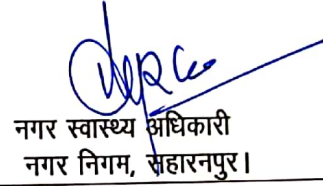 नगर स्वास्थ्य अधिकारी
नगर निगम, सहारनपुर।